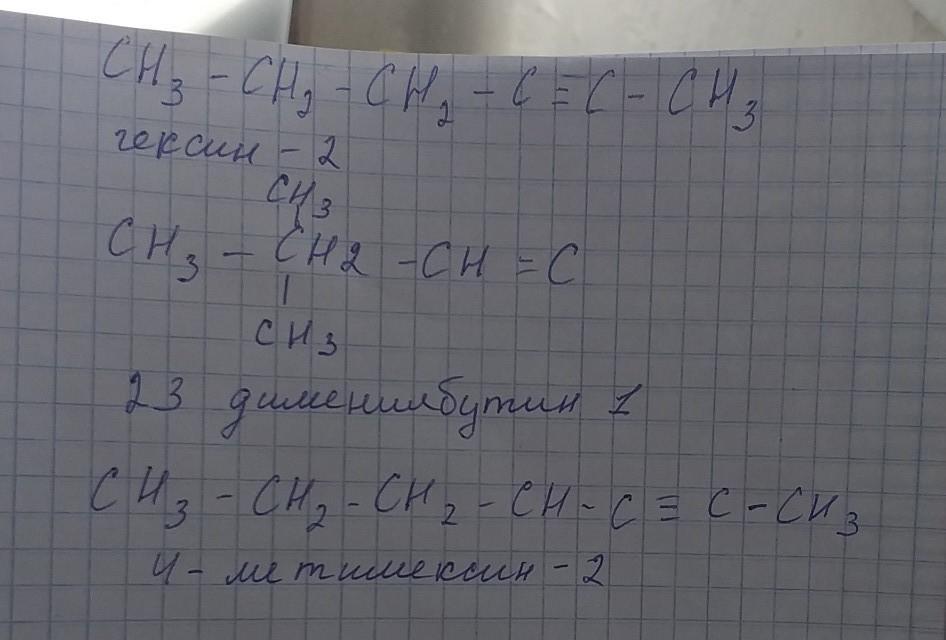 CH₃ - CH₂ - CH₂ - C ≡ C - CH₃
гексин - 2
CH₃
CH₃ - CH2 - CH = C
CH3
23 диметилбутин 1
CH₃ - CH₂ - CH₂ - CH - C ≡ C - CH₃
4 - метилгексин - 2